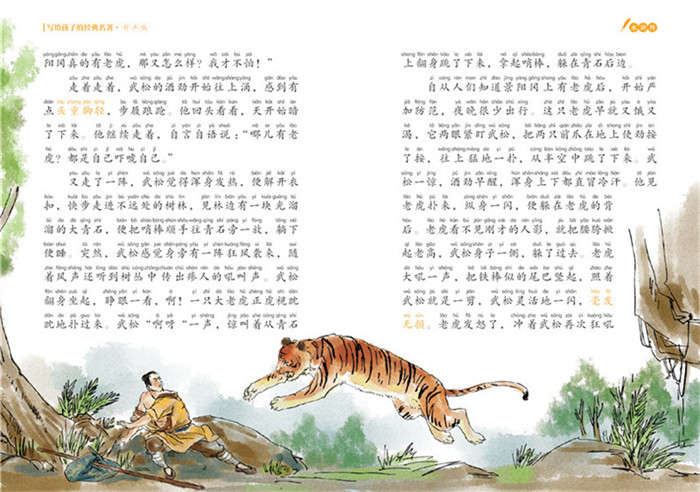 写给孩子的经典名著·有声版
阳冈真的有老虎,那又怎么样?我才不怕!”
走着走着,武松的酒劲开始往上涌,感到有
点头重脚轻,步履踉跄。他回头看看,天开始暗
了下来。他继续走着,自言自语说:“哪儿有老
虎?都是自己吓唬自己。”
又走了一阵,武松觉得浑身发热,便解开衣
扣,快步走进不远处的树林,见林边有一块光溜
溜的大青石,便把哨棒顺手往青石旁一放,躺下
便睡。突然,武松感觉身旁有一阵狂风袭来,随
着风声还听到树丛中传出瘆人的吼叫声。武松
翻身坐起,睁眼一看,啊!一只大老虎正虎视眈
眈地扑过来。武松“啊呀”一声,惊叫着从青石
水浒传
上翻身跳了下来,拿起哨棒,躲在青石后边。
自从人们知道景阳冈上有老虎后,开始严
加防范,夜晚很少出行。这只老虎早就又饿又
渴,它两眼紧盯武松,把两只前爪在地上使劲按
了按,往上猛地一扑,从半空中跳了下来。武
松一惊,酒劲早醒,浑身上下都直冒冷汗。他见
老虎扑来,纵身一闪,便躲在老虎的背
后。老虎看不见刚才的人影,就把腰胯掀
起老高,武松身子一侧,躲了过去。老虎
大吼一声,把铁棒似的尾巴竖起,照着
武松就是一剪,武松灵活地一闪,毫发
无损。老虎发怒了,冲着武松再次狂吼